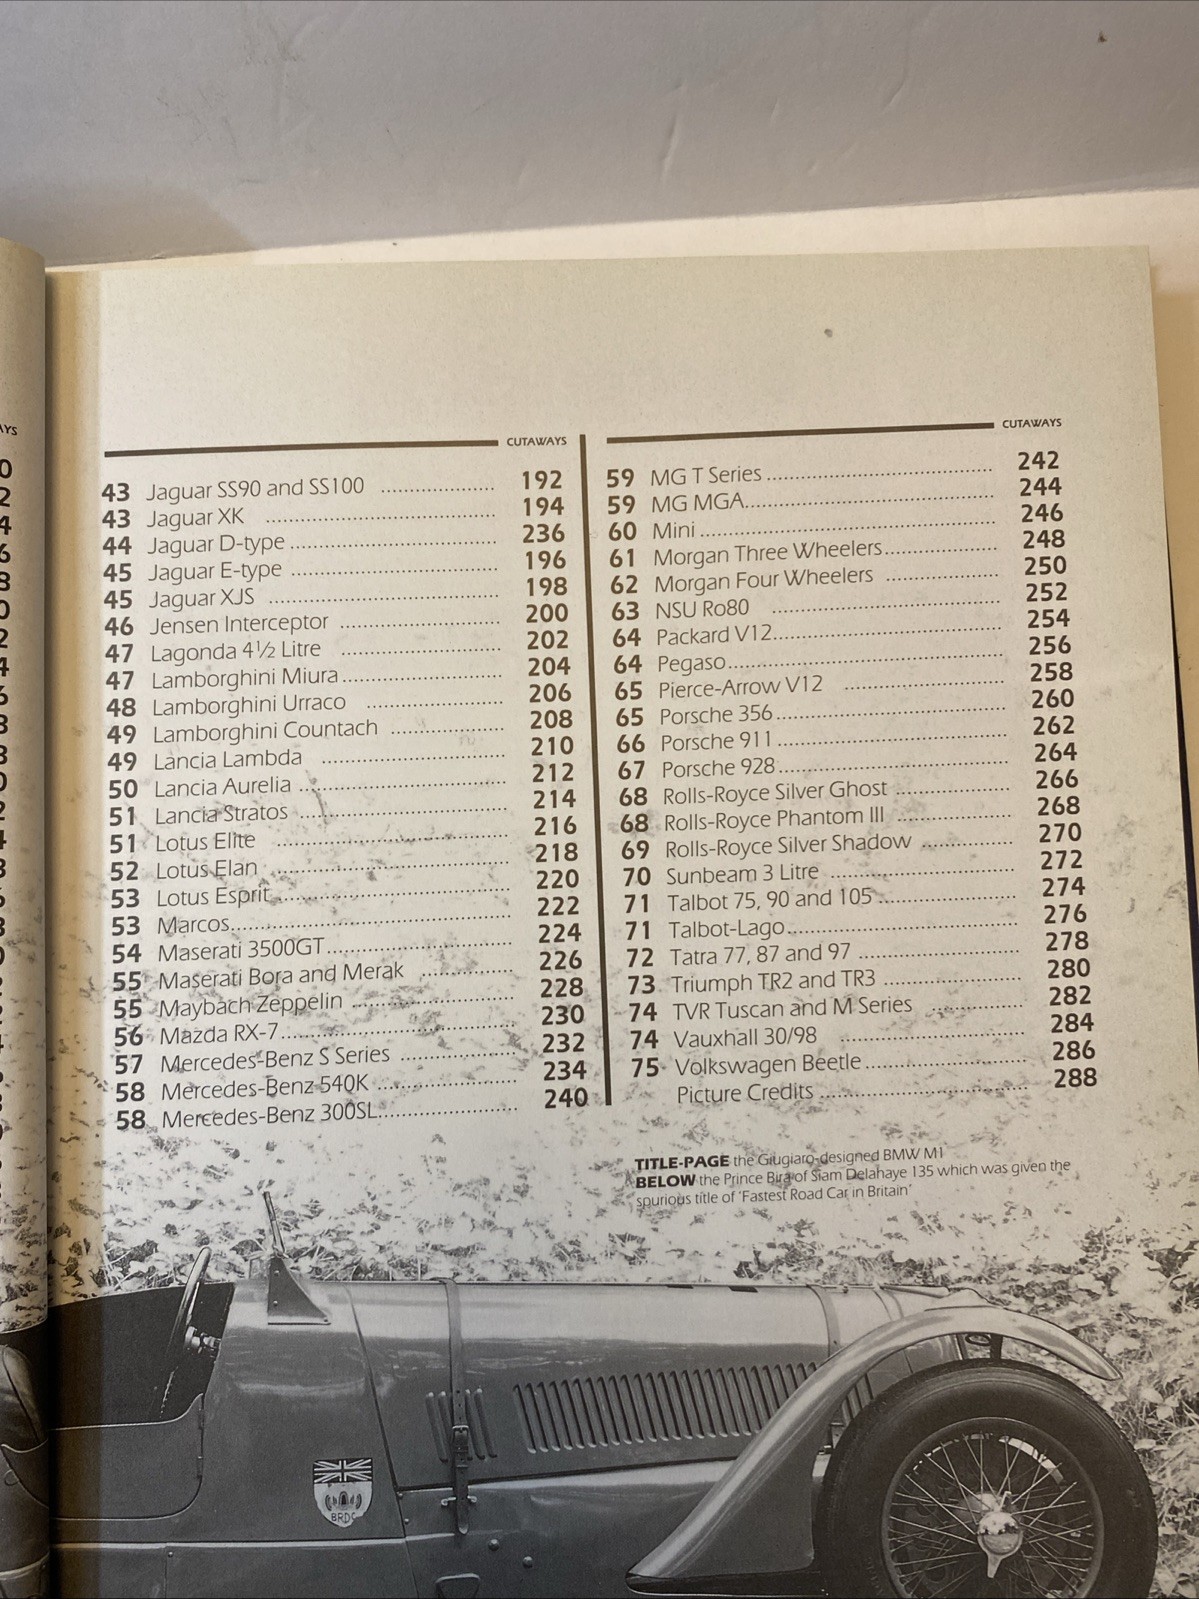 CUTAWAYS
43 Jaguar SS90 and SS100 ........ 192
43 Jaguar XK ........ 194
44 Jaguar D-type ........ 236
45 Jaguar E-type ........ 196
45 Jaguar XJS ........ 198
46 Jensen Interceptor ........ 200
47 Lagonda 4½ Litre ........ 202
47 Lamborghini Miura ........ 204
48 Lamborghini Urraco ........ 206
49 Lamborghini Countach ........ 208
49 Lancia Lambda ........ 210
50 Lancia Aurelia ........ 212
51 Lancia Stratos ........ 214
51 Lotus Elite ........ 216
52 Lotus Elan ........ 218
53 Lotus Esprit ........ 220
53 Marcos ........ 222
54 Maserati 3500GT ........ 224
55 Maserati Bora and Merak ........ 226
55 Maybach Zeppelin ........ 228
56 Mazda RX-7 ........ 230
57 Mercedes-Benz S Series ........ 232
58 Mercedes-Benz 540K ........ 234
58 Mercedes-Benz 300SL ........ 240
CUTAWAYS
59 MG T Series ........ 242
59 MG MGA ........ 244
60 Mini ........ 246
61 Morgan Three Wheelers ........ 248
62 Morgan Four Wheelers ........ 250
63 NSU Ro80 ........ 252
64 Packard V12 ........ 254
64 Pegaso ........ 256
65 Pierce-Arrow V12 ........ 258
65 Porsche 356 ........ 260
66 Porsche 911 ........ 262
67 Porsche 928 ........ 264
68 Rolls-Royce Silver Ghost ........ 266
68 Rolls-Royce Phantom III ........ 268
69 Rolls-Royce Silver Shadow ........ 270
70 Sunbeam 3 Litre ........ 272
71 Talbot 75, 90 and 105 ........ 274
71 Talbot-Lago ........ 276
72 Tatra 77, 87 and 97 ........ 278
73 Triumph TR2 and TR3 ........ 280
74 TVR Tuscan and M Series ........ 282
74 Vauxhall 30/98 ........ 284
75 Volkswagen Beetle ........ 286
Picture Credits ........ 288
TITLE-PAGE the Giugiaro-designed BMW M1
BELOW the Prince Bira of Siam Delahaye 135 which was given the
spurious title of 'Fastest Road Car in Britain'
BRDC